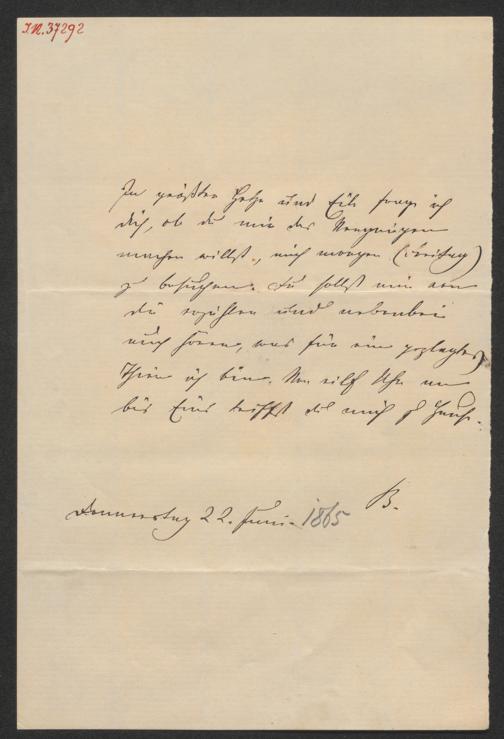 I.N. 37292
In größter Hetze und Eile frage ich
dich, ob du mir das Vergnügen
machen willst, mich morgen (Freitag)
zu besuchen. Du sollst mir von
dir erzählen und nebenbei
auch hören, was für ein geplagtes
Thier ich bin. Von eilf Uhr an
bis Eins triffst du mich zu Hause.
B.
Donnerstag 22. Juni. 1865